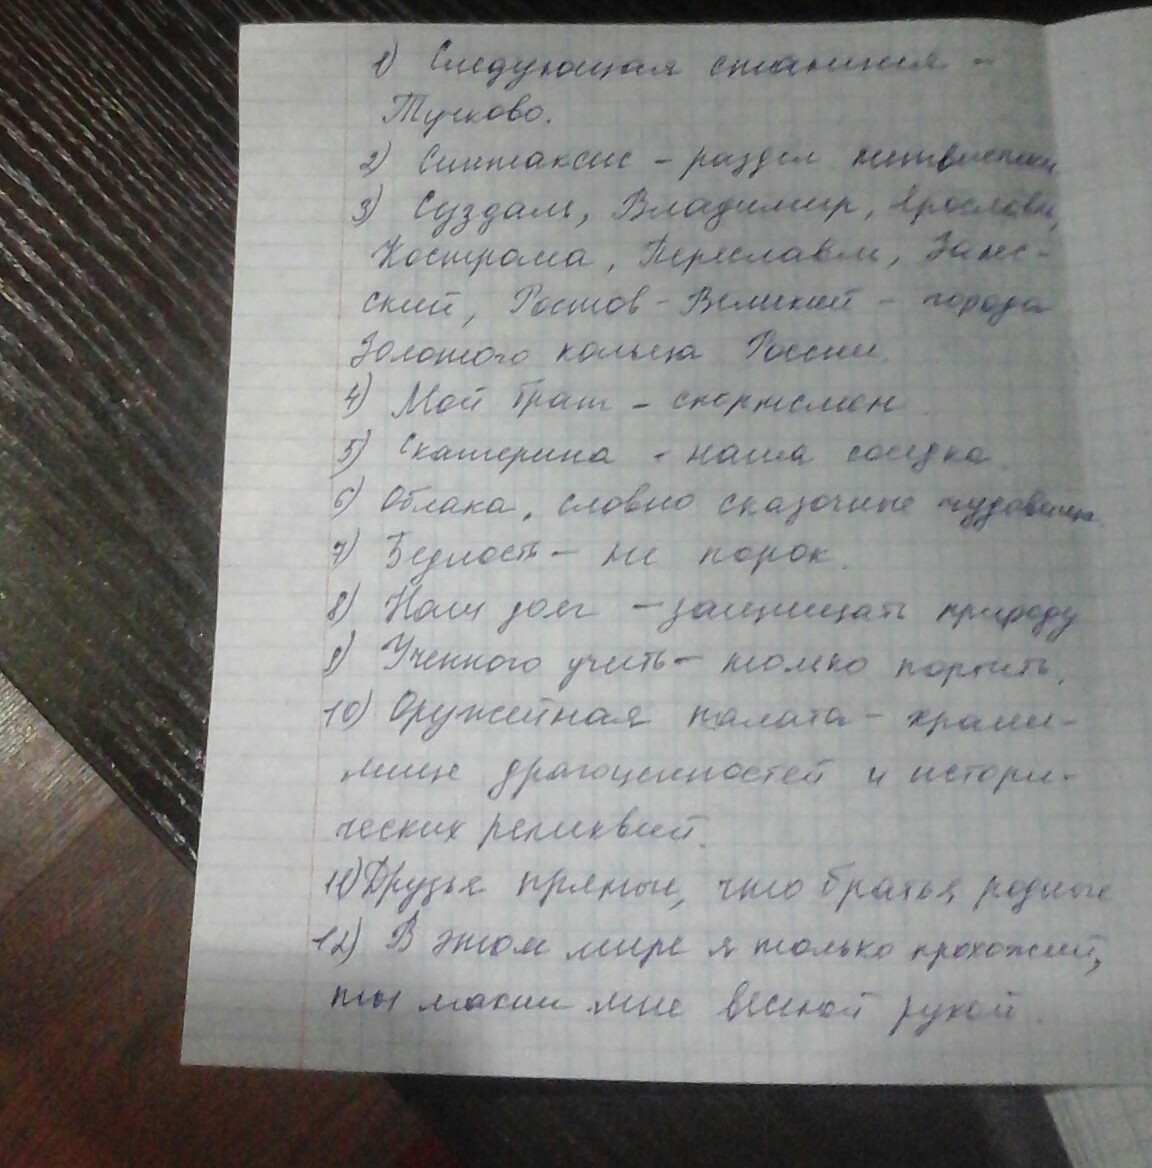 1) Следующая станция –
Тучково.
2) Синтаксис – раздел лингвистики
3) Суздаль, Владимир, Ярославль,
Кострома, Переславль, Залес-
ский, Ростов-Великий – города
Золотого кольца России.
4) Мой брат – спортсмен.
5) Екатерина – наша соседка.
6) Облака, словно сказочные чудовища.
7) Бедность – не порок.
8) Наш долг – защищать природу
9) Ученного учить – только портить.
10) Оружейная палата – храни-
лище драгоценностей и истори-
ческих реликвий.
11) Друзья прямые, что братья родные
12) В этом мире я только прохожий,
ты махни мне весной рукой.